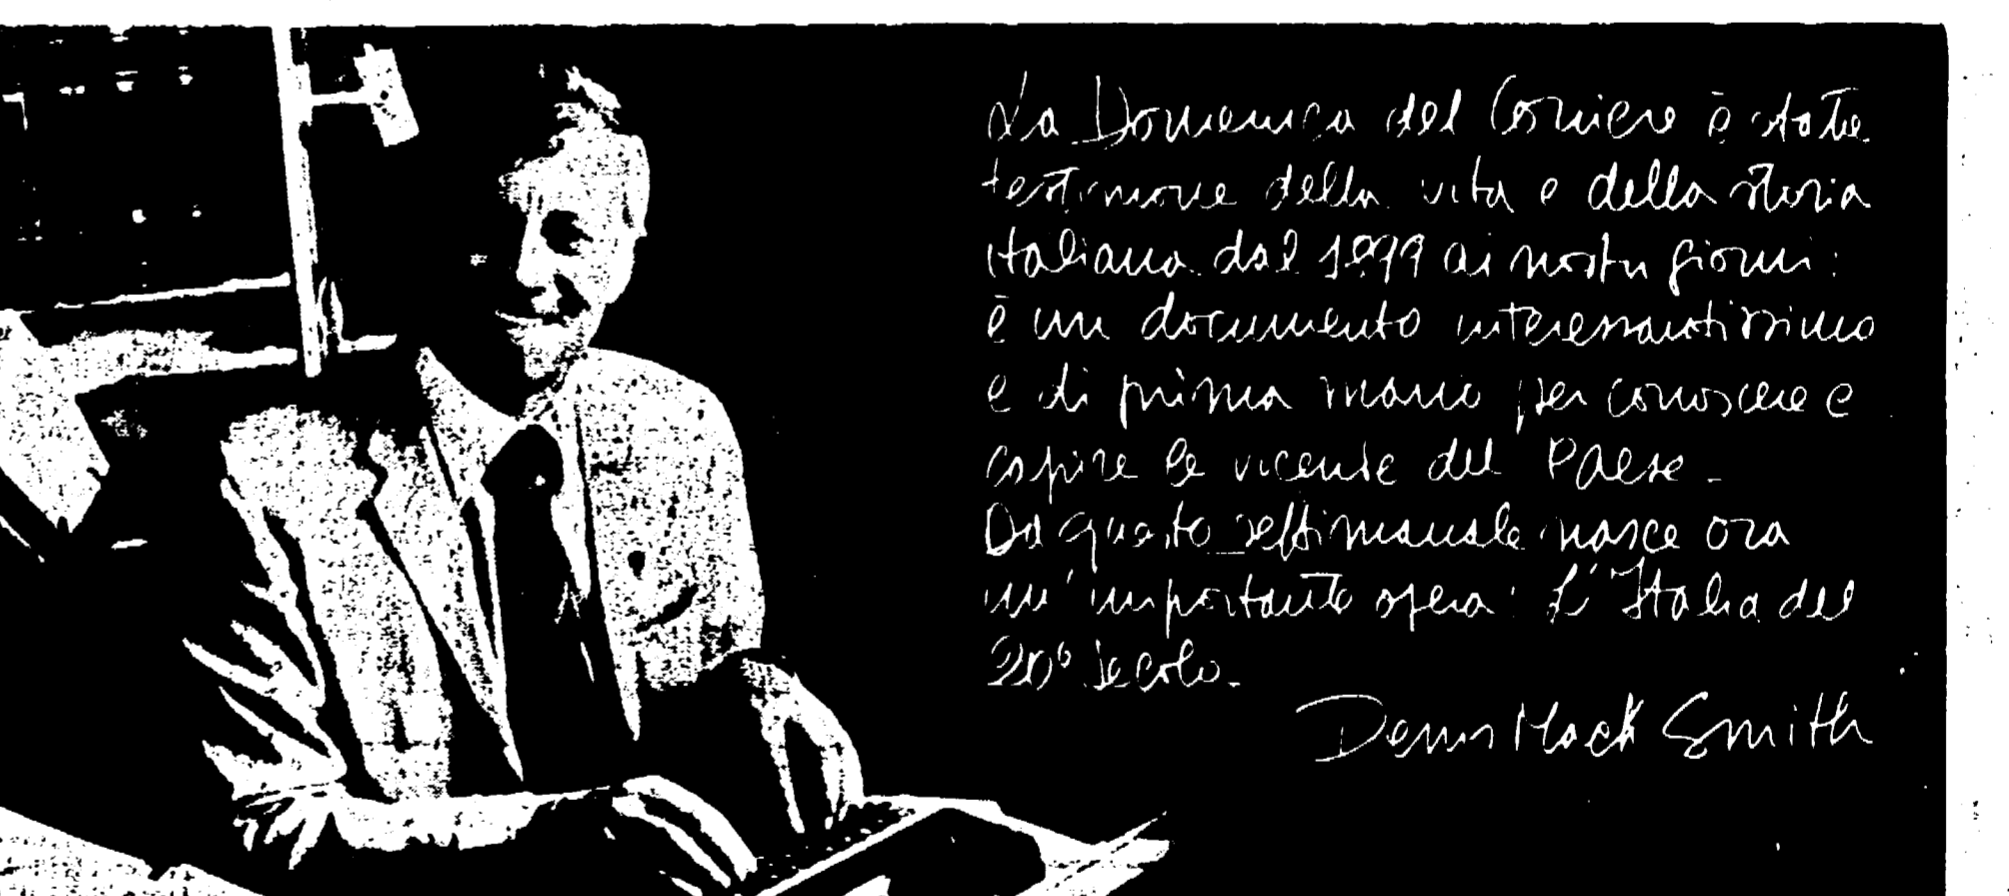 La Domenica del Corriere è stata
testimone della vita e della storia
italiana dal 1899 ai nostri giorni:
è un documento interessantissimo
e di prima mano per conoscere e
capire le vicende del Paese.
Da questo settimanale nasce ora
un'importante opera: L'Italia del
20° secolo.
Denis Mack Smith